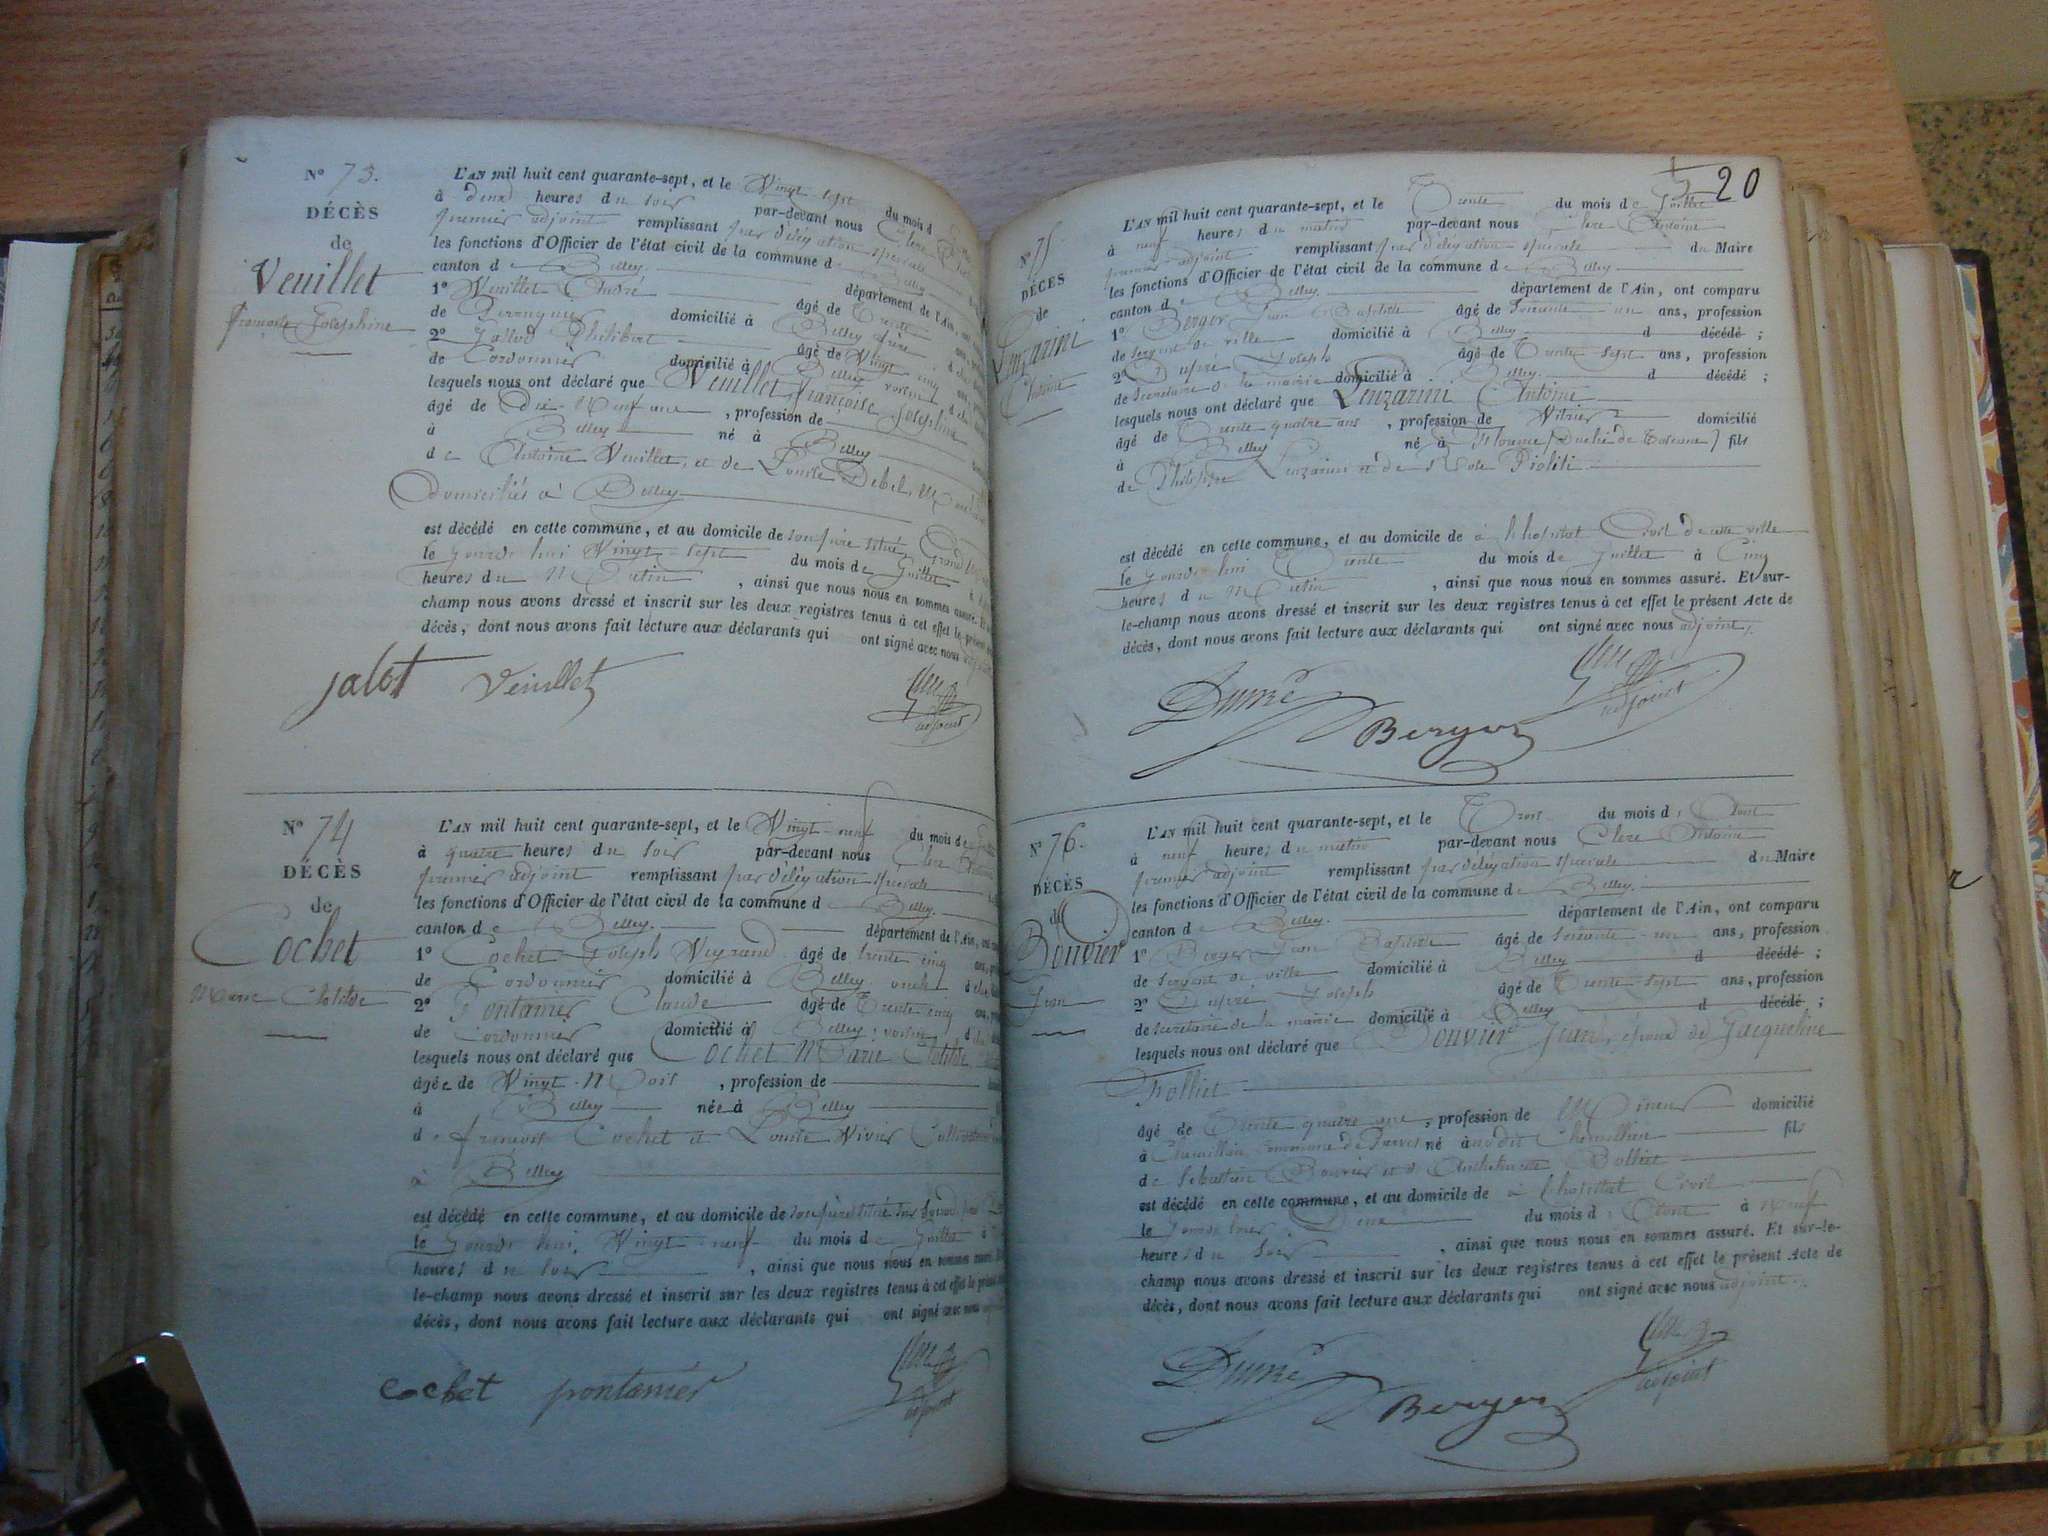 N° 73.
DÉCÈS
de
Veuillet
françoise Joséphine
L'AN mil huit cent quarante-sept, et le Vingt sept du mois d
à deux heures du soir par-devant nous Clerc
premier adjoint remplissant par délégation spéciale
les fonctions d'Officier de l'état civil de la commune de Belley
canton de Belley département de l'Ain,
1° Veuillet André âgé de Trente
de domicilié à Belley
2° Jallod Philibert âgé de Vingt cinq
de Cordonnier domicilié à Belley voisin d
lesquels nous ont déclaré que Veuillet, françoise Joséphine
âgé de Dix-Neuf ans, profession de
à Belley né à Belley
de Antoine Veuillet, et de Louise Debel,
Domiciliés à Belley
est décédé en cette commune, et au domicile de son père
le jourd'hui Vingt-sept du mois de Juillet à
heures du Matin, ainsi que nous nous en sommes assuré. Et
champ nous avons dressé et inscrit sur les deux registres tenus à cet effet le présent
décès, dont nous avons fait lecture aux déclarants qui ont signé avec nous
jalot Veuillet
adjoint
N° 74
DÉCÈS
de
Cochet
Marie Clotilde
L'AN mil huit cent quarante-sept, et le Vingt-neuf du mois de
à quatre heures du soir par-devant nous Clerc Antoine
premier adjoint remplissant par délégation spéciale
les fonctions d'Officier de l'état civil de la commune de Belley
canton de Belley. département de l'Ain,
1° Cochet Joseph âgé de trente cinq
de Cordonnier domicilié à Belley oncle d
2° Pontanier Claude âgé de Trente cinq
de Cordonnier domicilié à Belley, voisin, d
lesquels nous ont déclaré que Cochet Marie Clotilde
âgée de Vingt-Mois, profession de
à Belley née à Belley
de françois Cochet et Louise Vivier
à Belley
est décédé en cette commune, et au domicile de son père
le jourd'hui, Vingt-neuf du mois de Juillet à
heures du soir, ainsi que nous nous en sommes assuré.
le-champ nous avons dressé et inscrit sur les deux registres tenus à cet effet le présent
décès, dont nous avons fait lecture aux déclarants qui ont signé avec nous
cochet pontanier
adjoint
20
N° 75
DÉCÈS
de
Lenzarini
Antoine
L'AN mil huit cent quarante-sept, et le Trente du mois de Juillet
à neuf heures du matin par-devant nous Clerc Antoine
premier adjoint remplissant par délégation spéciale du Maire
les fonctions d'Officier de l'état civil de la commune de Belley
canton de Belley. département de l'Ain, ont comparu
1° Berger Jean Baptiste âgé de Soixante-un ans, profession
de sergent de ville domicilié à Belley d décédé ;
2° Dupré Joseph âgé de Trente sept ans, profession
de Secrétaire de la mairie domicilié à Belley. d décédé ;
lesquels nous ont déclaré que Lenzarini Antoine
âgé de Trente quatre ans, profession de Vitrier domicilié
à Belley né à florence (Duché de Toscane) fils
de Philippe Lenzarini et de Rose Pioliti
est décédé en cette commune, et au domicile de à l'hopital Civil de cette ville
le jourd'hui Trente du mois de Juillet à Cinq
heures du Matin, ainsi que nous nous en sommes assuré. Et sur-
le-champ nous avons dressé et inscrit sur les deux registres tenus à cet effet le présent Acte de
décès, dont nous avons fait lecture aux déclarants qui ont signé avec nous adjoint.
Dupré Berger
adjoint
N° 76.
DÉCÈS
de
Bouvier
Jean
L'AN mil huit cent quarante-sept, et le Trois du mois d'Aout
à neuf heures du matin par-devant nous Clerc Antoine
premier adjoint remplissant par délégation spéciale du Maire
les fonctions d'Officier de l'état civil de la commune de Belley.
canton de Belley. département de l'Ain, ont comparu
1° Berger Jean Baptiste âgé de soixante-un ans, profession
de sergent de ville domicilié à Belley d décédé ;
2° Dupré Joseph âgé de Trente sept ans, profession
de secrétaire de la mairie domicilié à Belley d décédé ;
lesquels nous ont déclaré que Bouvier Jean, époux de Jacqueline
Trolliet
âgé de Trente quatre ans, profession de Mineur domicilié
à Chemillieu commune de Parves né à au dit Chemillieu fils
de Sébastien Bouvier et d'Anthelmette Bolliet
est décédé en cette commune, et au domicile de à l'hopital Civil
le Deux du mois d'Aout à Neuf
heures du soir, ainsi que nous nous en sommes assuré. Et sur-le-
champ nous avons dressé et inscrit sur les deux registres tenus à cet effet le présent Acte de
décès, dont nous avons fait lecture aux déclarants qui ont signé avec nous adjoint.
Dupré Berger
adjoint